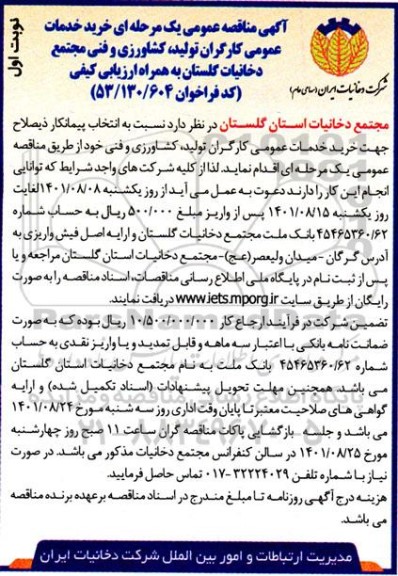 نوبت اول
شرکت دخانیات ایران (سهامی عام)
آگهی مناقصه عمومی یک مرحله ای خرید خدمات
عمومی کارگران تولید، کشاورزی و فنی مجتمع
دخانیات گلستان به همراه ارزیابی کیفی
(کد فراخوان ۵۳/۱۳۰/۶۰۴)
مجتمع دخانیات استان گلستان در نظر دارد نسبت به انتخاب پیمانکار ذیصلاح
جهت خرید خدمات عمومی کارگران تولید، کشاورزی و فنی خود از طریق مناقصه
عمومی یک مرحله ای اقدام نماید. لذا از کلیه شرکت های واجد شرایط که توانایی
انجام این کار را دارند دعوت به عمل می آید از روز یکشنبه ۱۴۰۱/۰۸/۰۸ لغایت
روز یکشنبه ۱۴۰۱/۰۸/۱۵ پس از واریز مبلغ ۵۰۰/۰۰۰ ریال به حساب شماره
۴۵۴۶۵۳۶۰/۶۲ بانک ملت مجتمع دخانیات گلستان و ارایه اصل فیش واریزی به
آدرس گرگان - میدان ولیعصر(عج)-مجتمع دخانیات استان گلستان مراجعه و یا
پس از ثبت نام در پایگاه ملی اطلاع رسانی مناقصات، اسناد مناقصه را به صورت
رایگان از طریق سایت www.iets.mporg.ir دریافت نمایند.
تضمین شرکت در فرآیند ارجاع کار ۱۰/۵۰۰/۰۰۰/۰۰۰ ریال بوده که به صورت
ضمانت نامه بانکی با اعتبار سه ماهه و قابل تمدید و یا واریز نقدی به حساب
شماره ۴۵۴۶۵۳۶۰/۶۲ بانک ملت به نام مجتمع دخانیات استان گلستان
می باشد. همچنین مهلت تحویل پیشنهادات (اسناد تکمیل شده) و ارایه
گواهی های صلاحیت معتبر تا پایان وقت اداری روز سه شنبه مورخ ۱۴۰۱/۰۸/۲۴
می باشد و جلسه بازگشایی پاکات مناقصه گران ساعت ۱۱ صبح روز چهارشنبه
مورخ ۱۴۰۱/۰۸/۲۵ در سالن کنفرانس مجتمع دخانیات مذکور می باشد. در صورت
نیاز با شماره تلفن ۳۲۲۲۴۰۲۹-۰۱۷ تماس حاصل فرمایید.
هزینه درج آگهی روزنامه تا مبلغ مندرج در اسناد مناقصه بر عهده برنده مناقصه
می باشد.
مدیریت ارتباطات و امور بین الملل شرکت دخانیات ایران